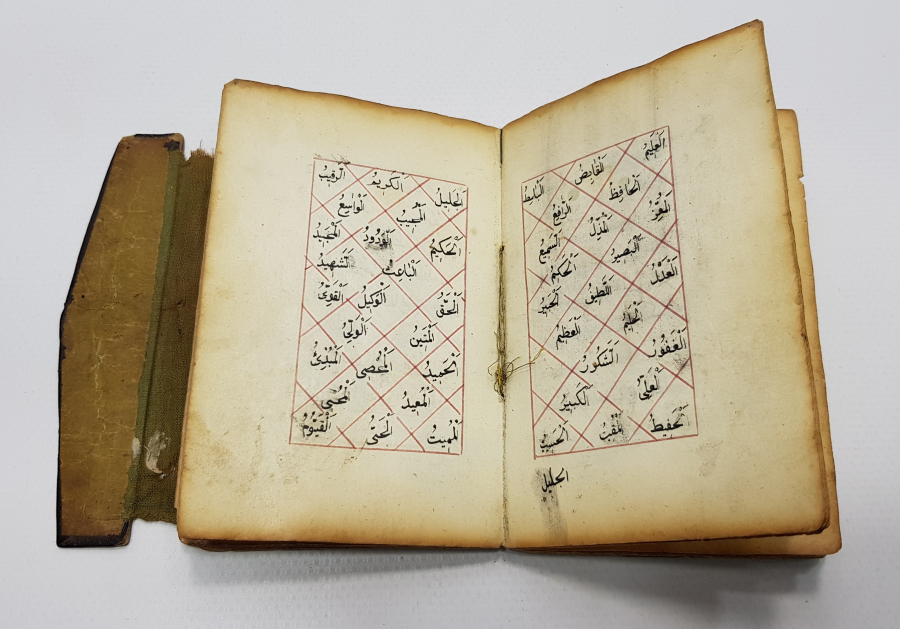 العليم القابض الباسط
الحافظ الرافع
المعز المذل السميع
البصير الحكم
العدل اللطيف الخبير
الحليم العظيم
الغفور الشكور
العلي الكبير
الحفيظ المقيت الحسيب
الجليل
الجليل الكريم الرقيب
المجيب الواسع
الحكيم الودود المجيد
الباعث الشهيد
الحق الوكيل القوي
المتين الولي
الحميد المحصي المبدئ
المعيد المحيي
المميت الحي القيوم